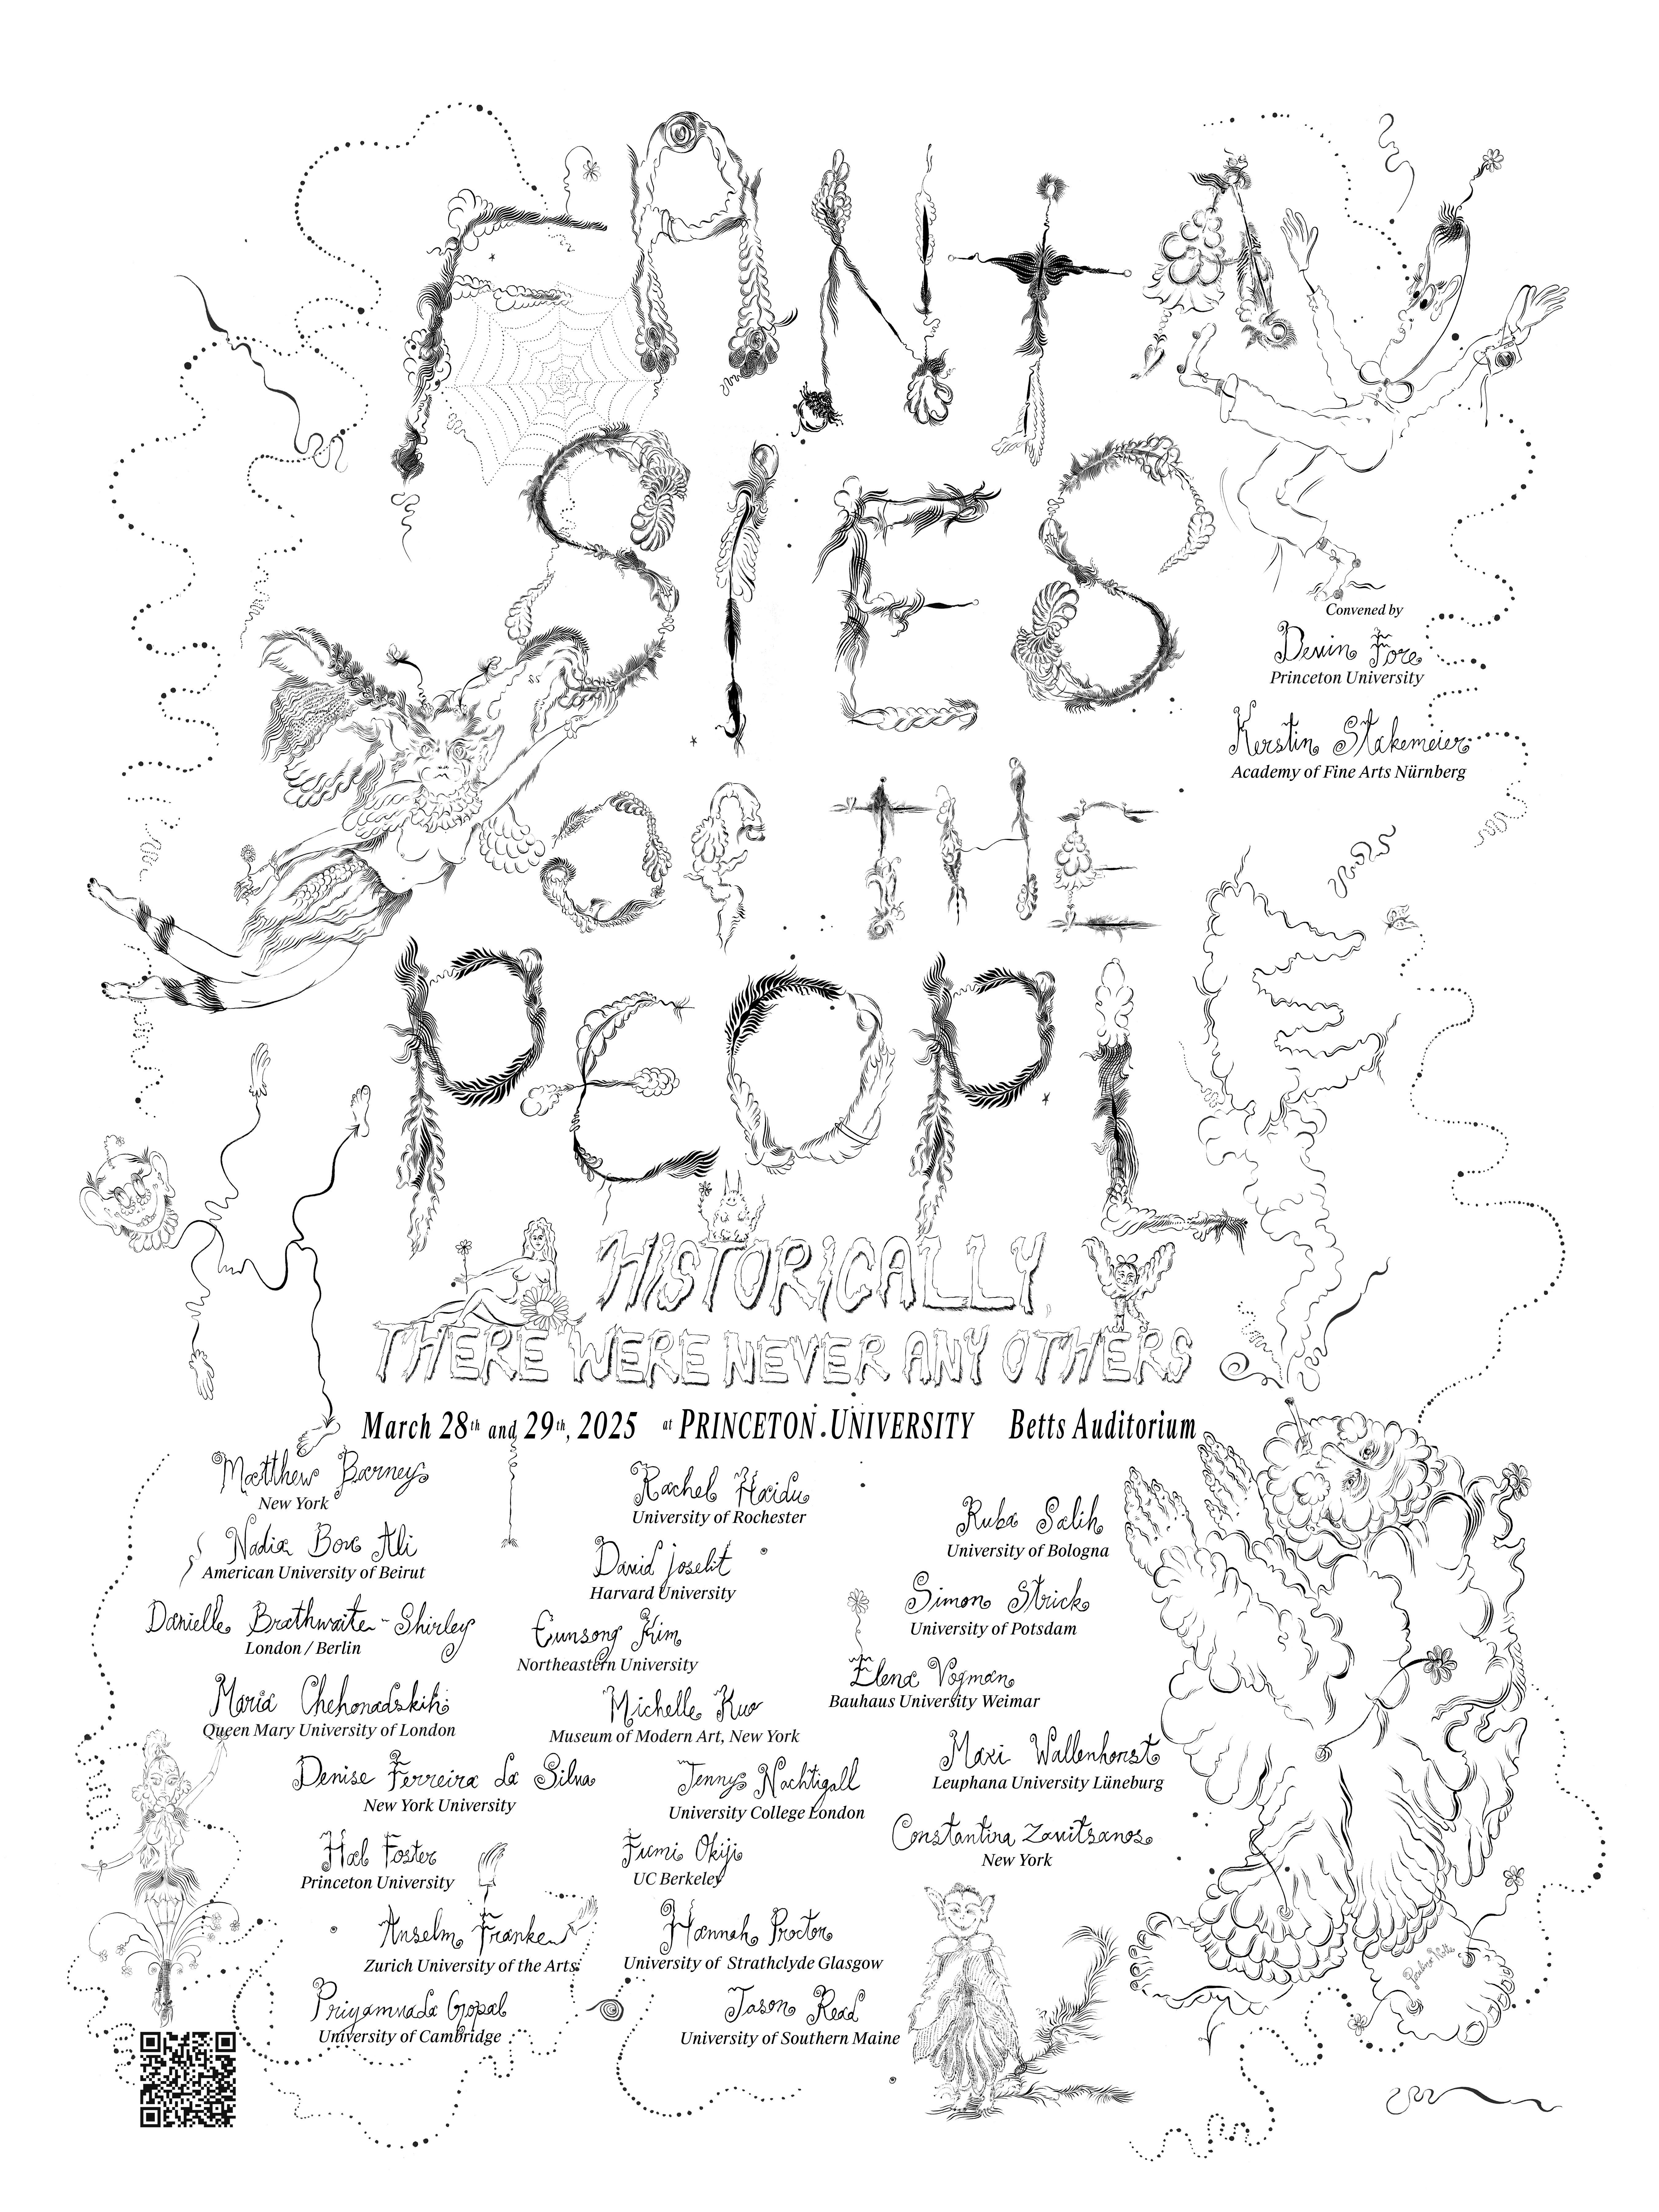 FANTA
SIES
OF THE
PEOPLE
HISTORICALLY,
THERE WERE NEVER ANY OTHERS
March 28th and 29th, 2025 at PRINCETON UNIVERSITY Betts Auditorium
Convened by
Devin Fore
Princeton University
Kerstin Stakemeier
Academy of Fine Arts Nürnberg
Matthew Barney
New York
Nadia Bou Ali
American University of Beirut
Danielle Brathwaite-Shirley
London / Berlin
Maria Chehonadskih
Queen Mary University of London
Denise Ferreira da Silva
New York University
Hal Foster
Princeton University
Anselm Franke
Zurich University of the Arts
Priyamvada Gopal
University of Cambridge
Rachel Haidu
University of Rochester
David Joselit
Harvard University
Eunsong Kim
Northeastern University
Michelle Kuo
Museum of Modern Art, New York
Jenny Nachtigall
University College London
Fumi Okiji
UC Berkeley
Hannah Proctor
University of Strathclyde Glasgow
Jason Read
University of Southern Maine
Ruba Salih
University of Bologna
Simon Strick
University of Potsdam
Elena Vogman
Bauhaus University Weimar
Maxi Wallenhorst
Leuphana University Lüneburg
Constantina Zavitsanos
New York